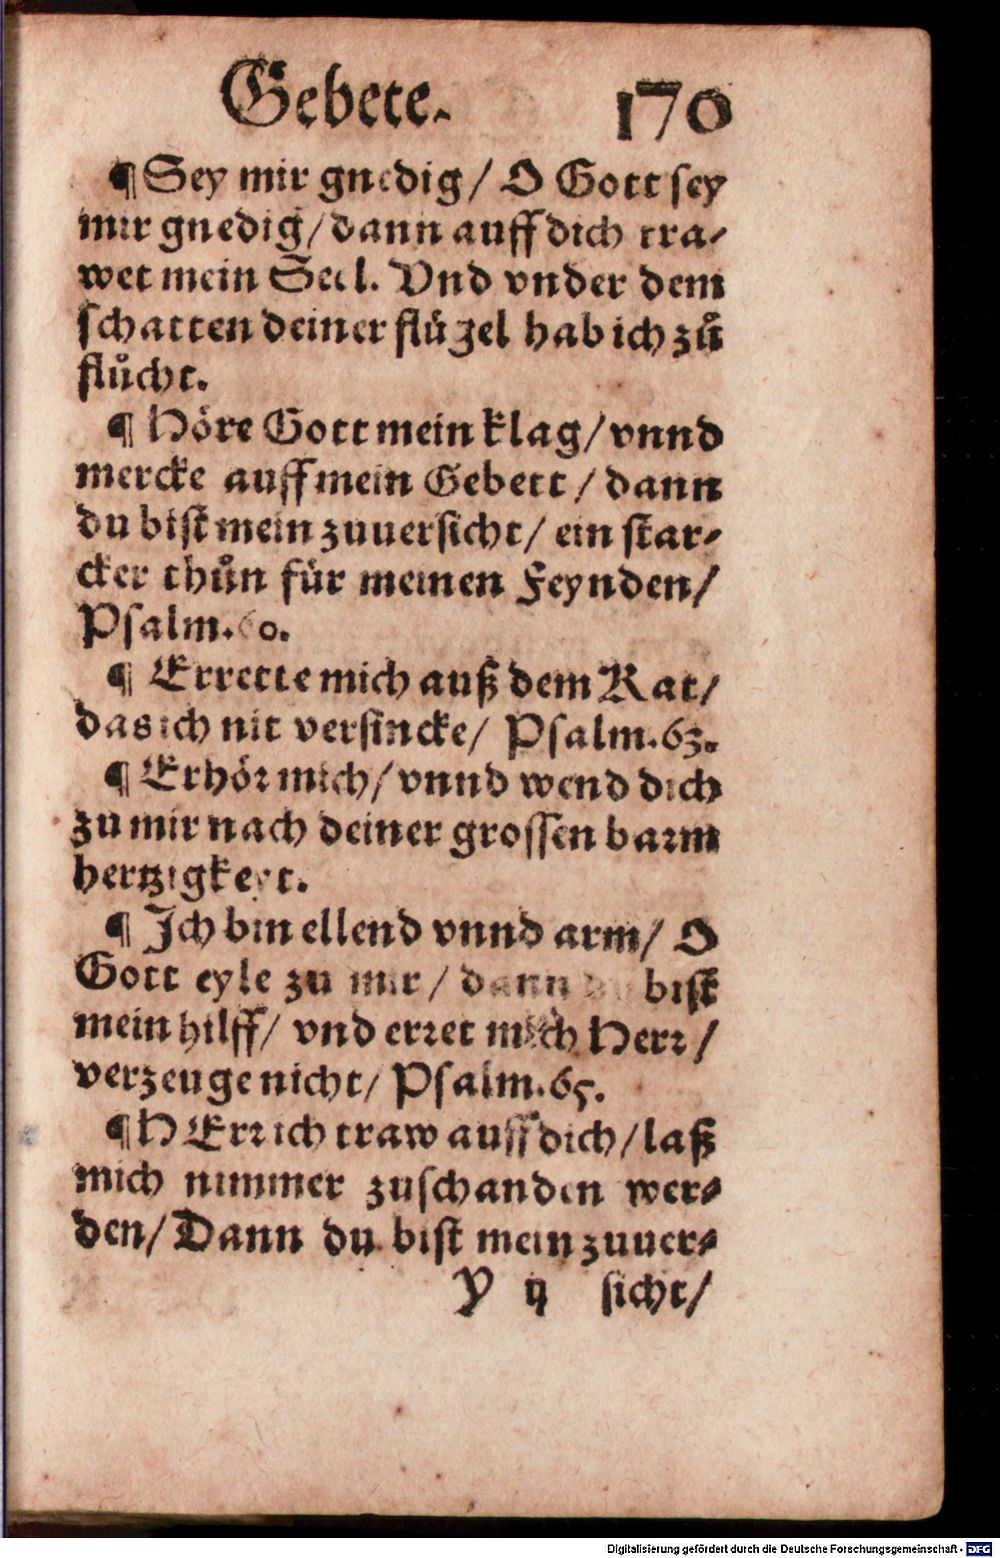 Gebete. 170
¶ Sey mir gnedig / O Gott sey
mir gnedig / dann auff dich tra⸗
wet mein Seel. Vnd vnder dem
schatten deiner flügel hab ich zů
flůcht.
¶ Höre Gott mein klag / vnnd
mercke auff mein Gebett / dann
du bist mein zuuersicht / ein star⸗
cker thůn für meinen Feynden /
Psalm. 60.
¶ Errette mich auß dem Kat /
das ich nit versincke / Psalm. 63.
¶ Erhör mich / vnnd wend dich
zu mir nach deiner grossen barm
hertzigkeyt.
¶ Ich bin ellend vnnd arm / O
Gott eyle zu mir / dann du bist
mein hilff / vnd erret mich Herr /
verzeuge nicht / Psalm. 65.
¶ HErr ich traw auff dich / laß
mich nimmer zuschanden wer⸗
den / Dann du bist mein zuuer⸗
Y ij sicht /
Digitalisierung gefördert durch die Deutsche Forschungsgemeinschaft - DFG